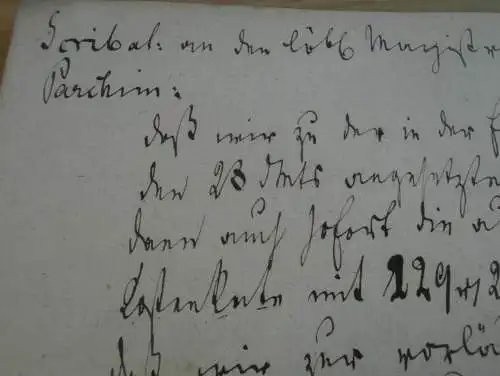 Scribat: an den löbl Magistr
Parchim:
daß wir zu der in der E
den 23 d Mts angesetzte
dann auch sofort die a
Kosten mit 129 r 2
daß wir zur vorlä